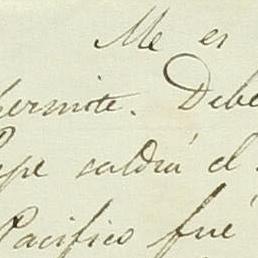 Me es
permite. Debe
Pepe saldrá el
Pacífico fué